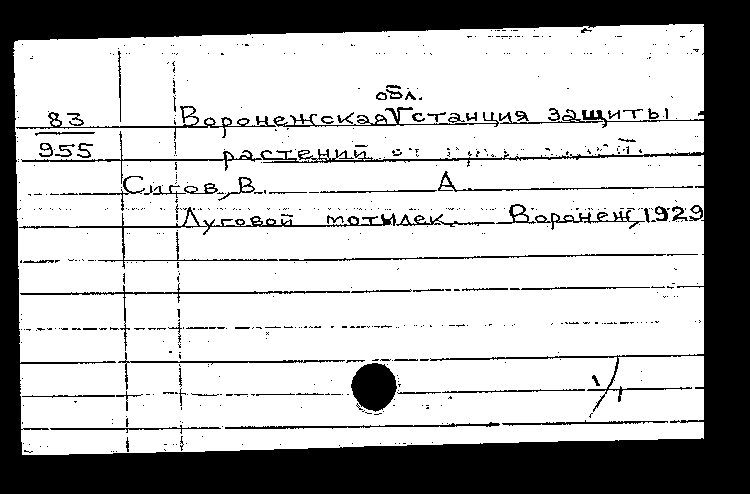 обл.
83 Воронежская V станция защиты
955 растений от
Сигов, В. А.
Луговой мотылек. Воронеж, 1929
1/1